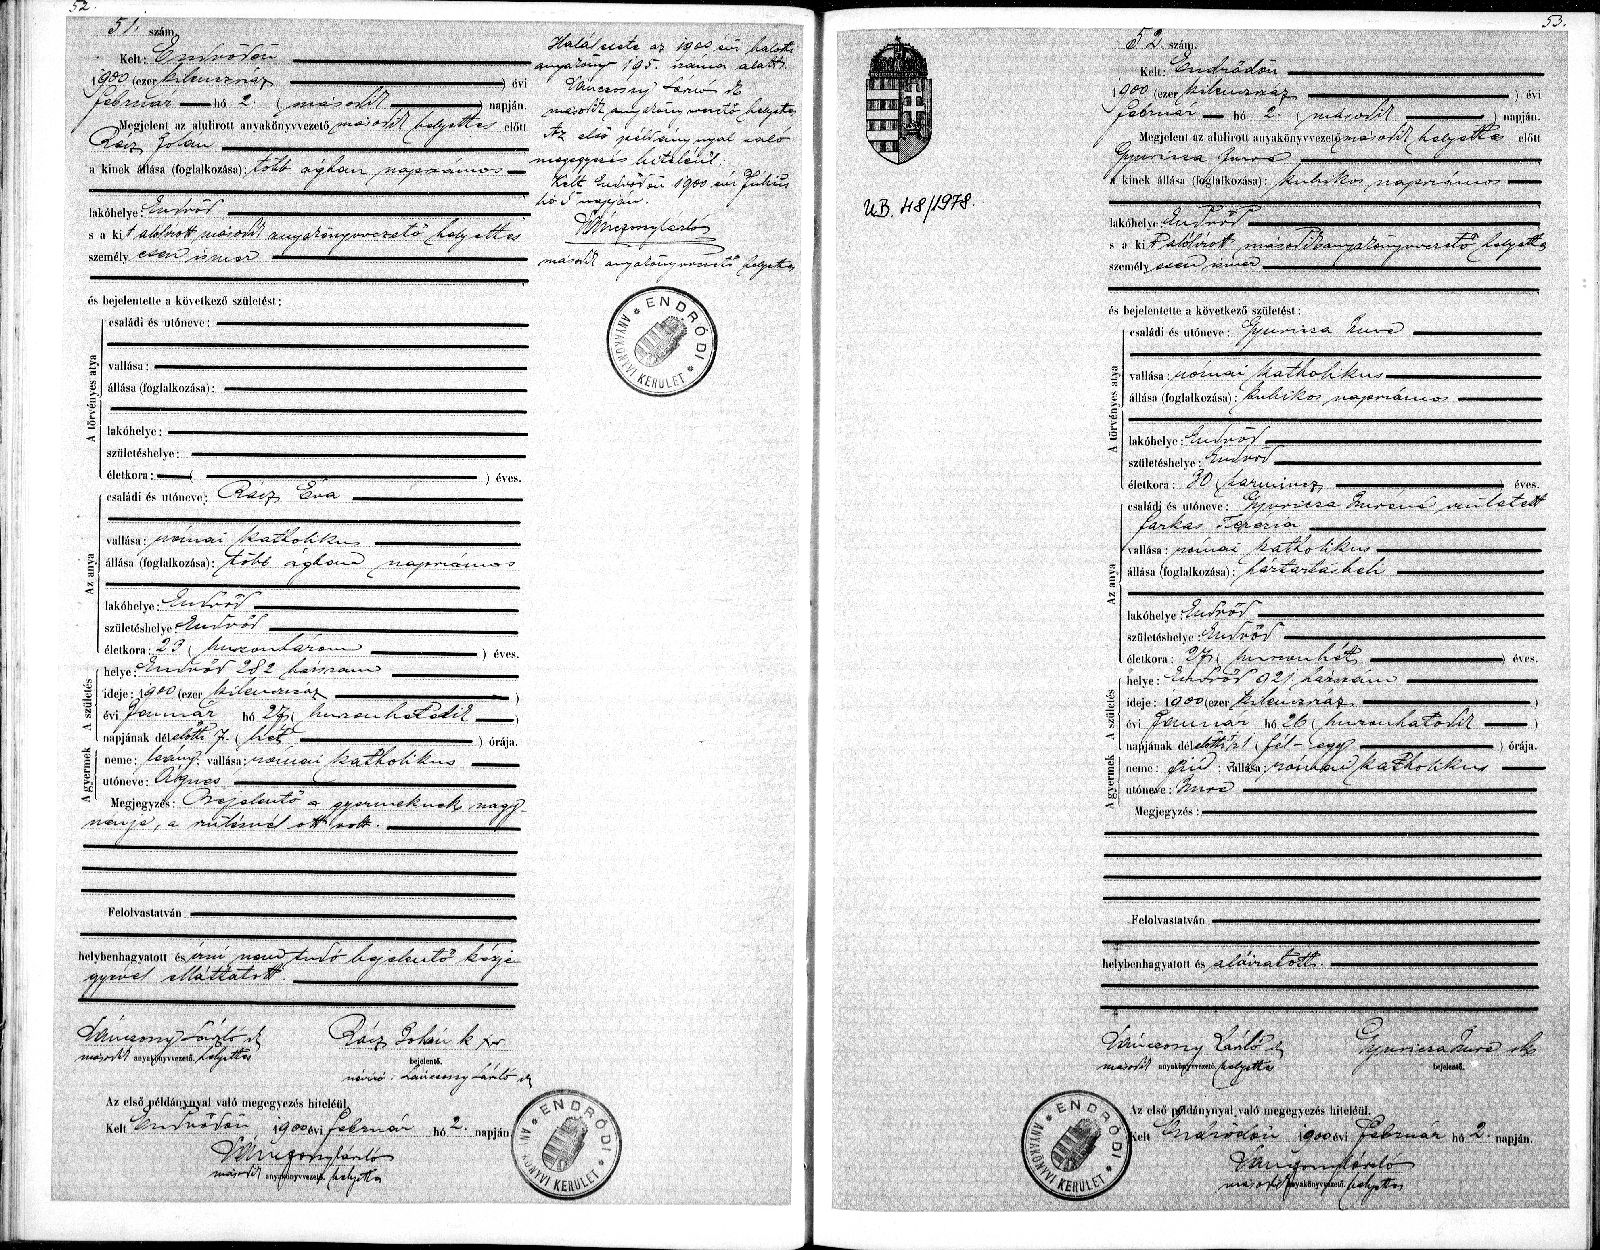 52.
51. szám.
Kelt: Endrődön
1900 (ezer kilenczszáz) évi
február hó 2. (második) napján.
Megjelent az alulirott anyakönyvvezető második helyettes előtt
Rácz
a kinek állása (foglalkozása): több ágban napszámos
lakóhelye: Endrőd
s a kit alólirott második anyakönyvvezető helyettes
személyesen ismer
és bejelentette a következő születést:
A törvényes atya
családi és utóneve:
vallása:
állása (foglalkozása):
lakóhelye:
születéshelye:
életkora: ( ) éves.
Az anya
családi és utóneve: Rácz Éva
vallása: római katholikus
állása (foglalkozása): több ágban napszámos
lakóhelye: Endrőd
születéshelye: Endrőd
életkora: 23 (huszonhárom) éves.
A születés
helye: Endrőd 282 házszám
ideje: 1900 (ezer kilenczszáz)
évi Január hó 27 (huszonhetedik)
napjának délelőtti 7. (hét) órája.
A gyermek
neme: leány; vallása: római katholikus
utóneve: Ágnes
Megjegyzés: Bejelentő a gyermeknek nagy-
nénje, a szülésnél ott volt.
Felolvastatván
helybenhagyatott és irni nem tudó bejelentő kézje
gyével elláttatott.
Vánczony László
második anyakönyvvezető. helyettes
Rácz
bejelentő.
névíró: Vánczony László
Az első példánynyal való megegyezés hiteléül.
Kelt Endrődön 1900 évi február hó 2. napján
Vánczony László
második anyakönyvvezető helyettes
ENDRŐDI ANYAKÖNYVI KERÜLET
Halál esete az 1900 évi halotti
anyakönyv 195. száma alatt.
Vánczony László
második anyakönyvvezető helyettes
Az első példánynyal való
megegyezés hiteléül.
Kelt Endrődön 1900 évi Julius
hó 5 napján.
Vánczony László
második anyakönyvvezető helyettes
ENDRŐDI ANYAKÖNYVI KERÜLET
53.
U.B. 48/1978.
52 szám.
Kelt: Endrődön
1900 (ezer kilenczszáz) évi
február hó 2. (második) napján.
Megjelent az alulirott anyakönyvvezető második helyettes előtt
Gyuricza Imre
a kinek állása (foglalkozása): kubikos napszámos
lakóhelye: Endrőd
s a kit alólirott második anyakönyvvezető helyettes
személyesen ismer
és bejelentette a következő születést:
A törvényes atya
családi és utóneve: Gyuricza Imre
vallása: római katholikus
állása (foglalkozása): kubikos napszámos
lakóhelye: Endrőd
születéshelye: Endrőd
életkora: 30 (harmincz) éves.
Az anya
családi és utóneve: Gyuricza Imréné született
Farkas Terézia
vallása: római katholikus
állása (foglalkozása): háztartásbeli
lakóhelye: Endrőd
születéshelye: Endrőd
életkora: 27 (huszonhét) éves.
A születés
helye: Endrőd 921 házszám
ideje: 1900 (ezer kilenczszáz)
évi Január hó 26 (huszonhatodik)
napjának délelőtti (fél-egy) órája.
A gyermek
neme: fiú; vallása: római katholikus
utóneve: Imre
Megjegyzés:
Felolvastatván
helybenhagyatott és aláíratott.
Vánczony László
második anyakönyvvezető. helyettes
Gyuricza Imre
bejelentő.
Az első példánynyal való megegyezés hiteléül.
Kelt Endrődön 1900 évi február hó 2. napján.
Vánczony László
második anyakönyvvezető helyettes
ENDRŐDI ANYAKÖNYVI KERÜLET